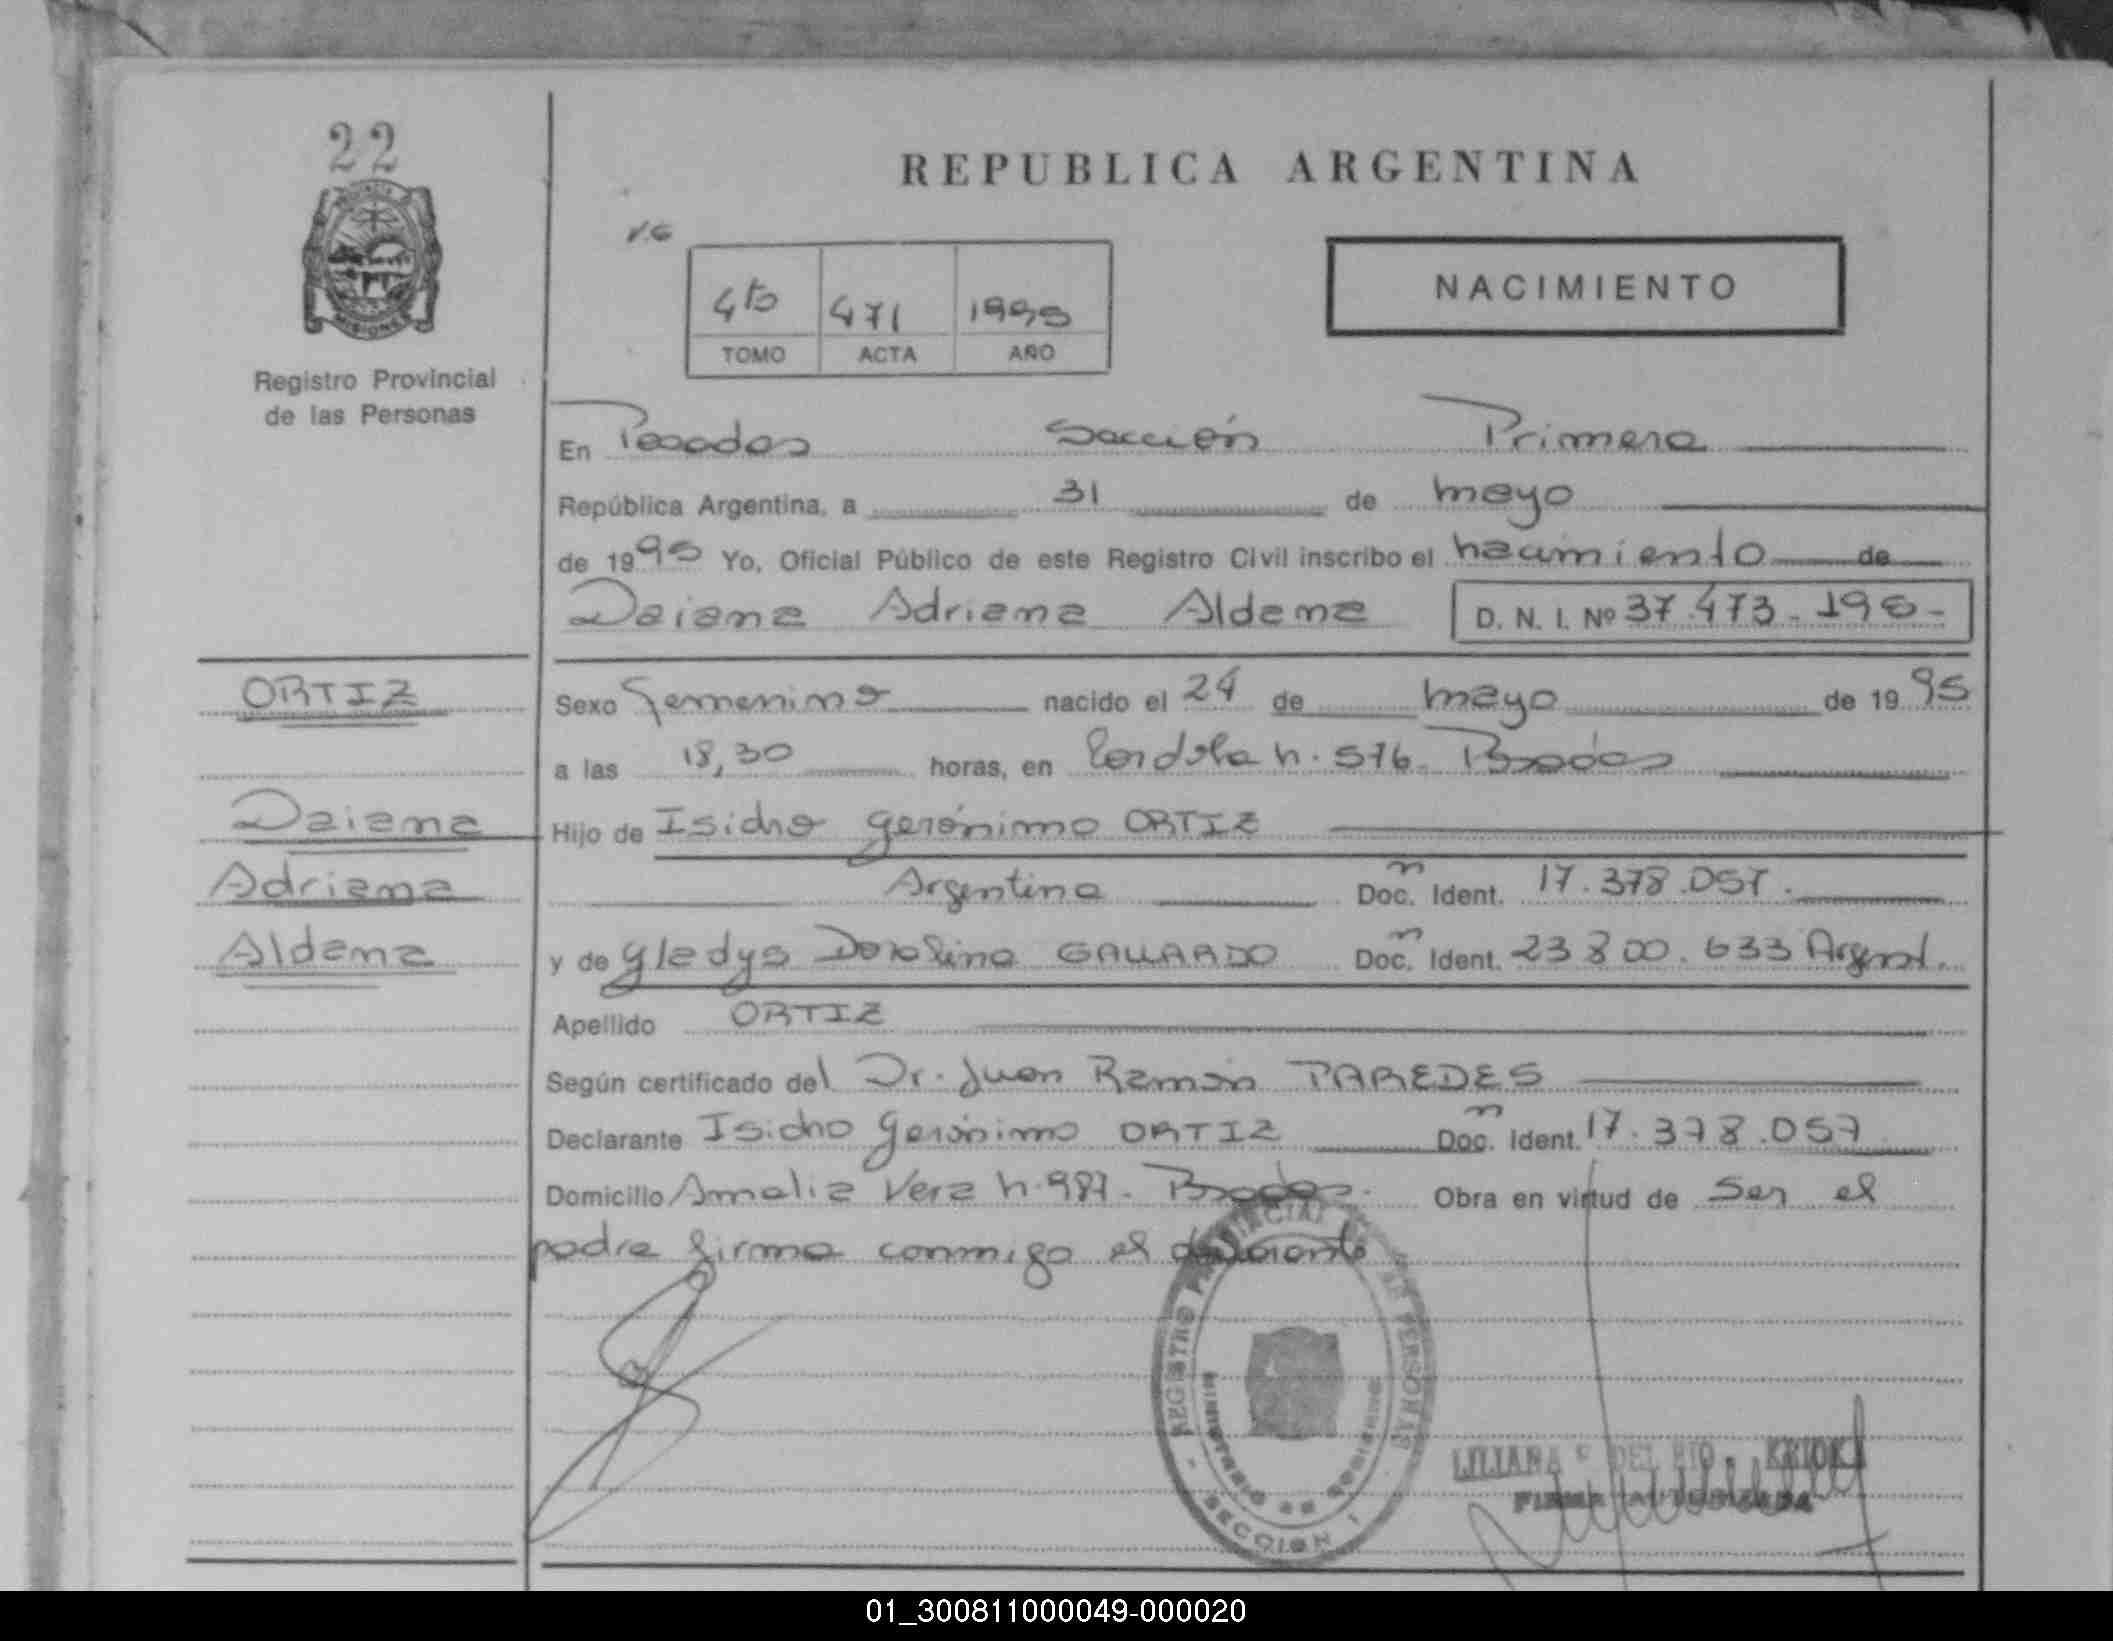 22
REPUBLICA ARGENTINA
V.G
4to 471 1995
TOMO ACTA AÑO
NACIMIENTO
PROVINCIA
MISIONES
Registro Provincial
de las Personas
En Posadas Sección Primera
República Argentina, a 31 de mayo
de 1995 Yo, Oficial Público de este Registro Civil inscribo el nacimiento de
Daiana Adriana Aldana D. N. I. Nº 37.473.-198-
ORTIZ
Sexo Femenino nacido el 24 de mayo de 1995
a las 18,30 horas, en Cordoba n. 576. Posadas
Daiana
Hijo de Isidro Gerónimo ORTIZ
Adriana
Argentina Doc. Ident. 17.378.057.
Aldana
y de Gladys Doralina GALLARDO Doc. Ident. 23 800.633 Argent.
Apellido ORTIZ
Según certificado del Dr. Juan Ramón PAREDES
Declarante Isidro Gerónimo ORTIZ Doc. Ident. 17.378.057
Domicilio Amalia Vera n. 987. Posadas. Obra en virtud de Ser el
padre firma conmigo el declarante
REGISTRO PROVINCIAL DE LAS PERSONAS
MINISTERIO DE GOBIERNO
- SECCION 1 -
LILIANA DEL RIO
FIRMA AUTORIZADA
01_300811000049-000020